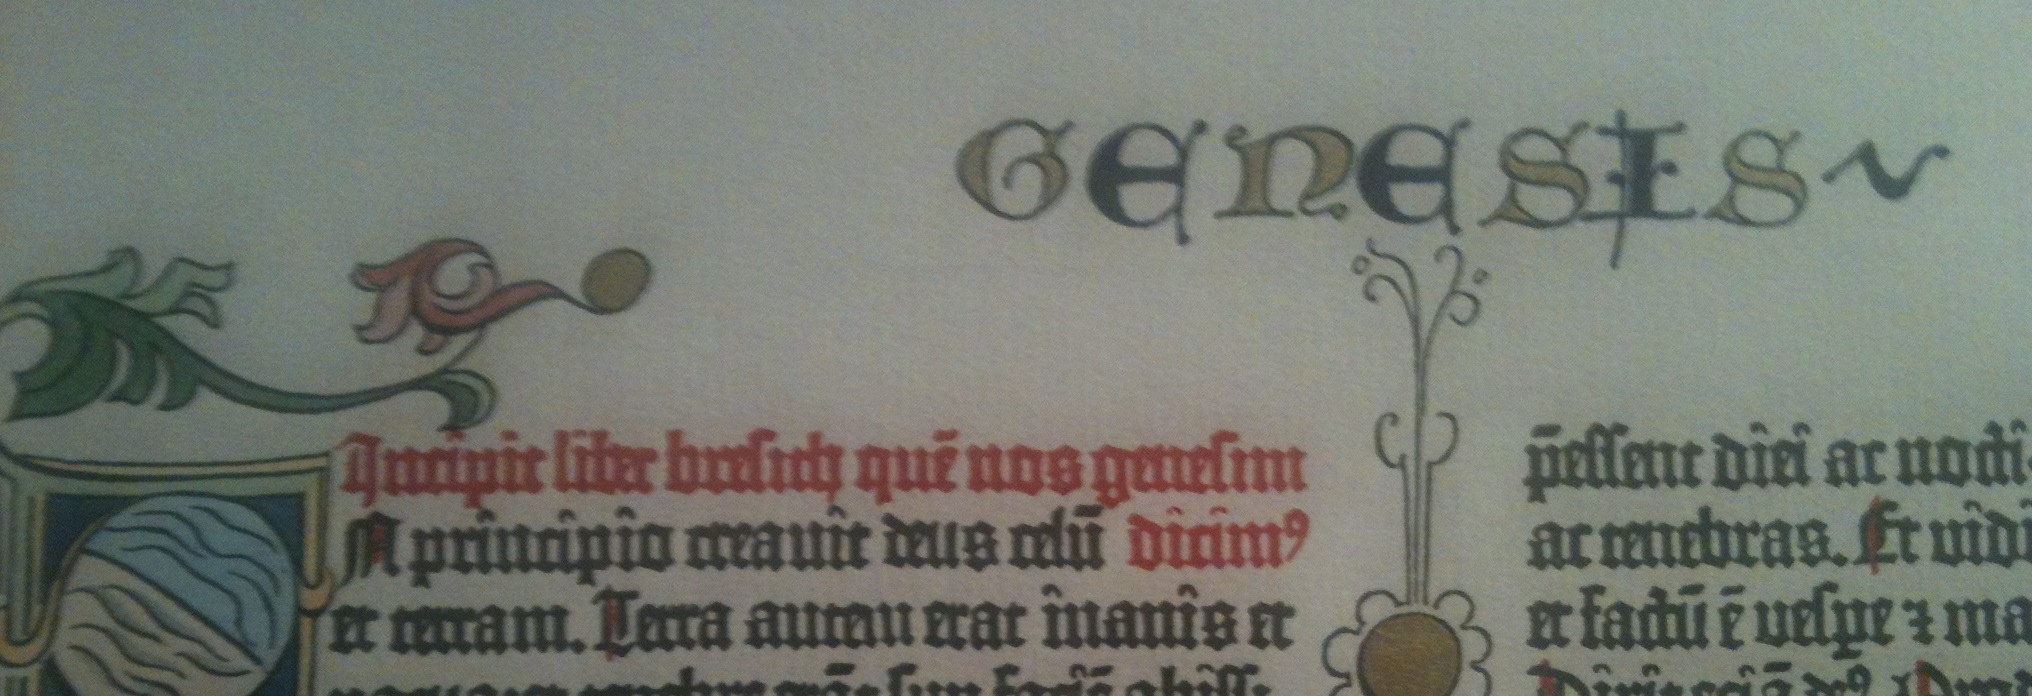 GENESIS
Incipit liber bresith quē nos genesim
A principio creavit deus celū dicimꝰ
et terram. Terra autem erat inanis et
p̄essent diei ac nocti
ac tenebras. Et vidi
et factū ē vespe ⁊ ma